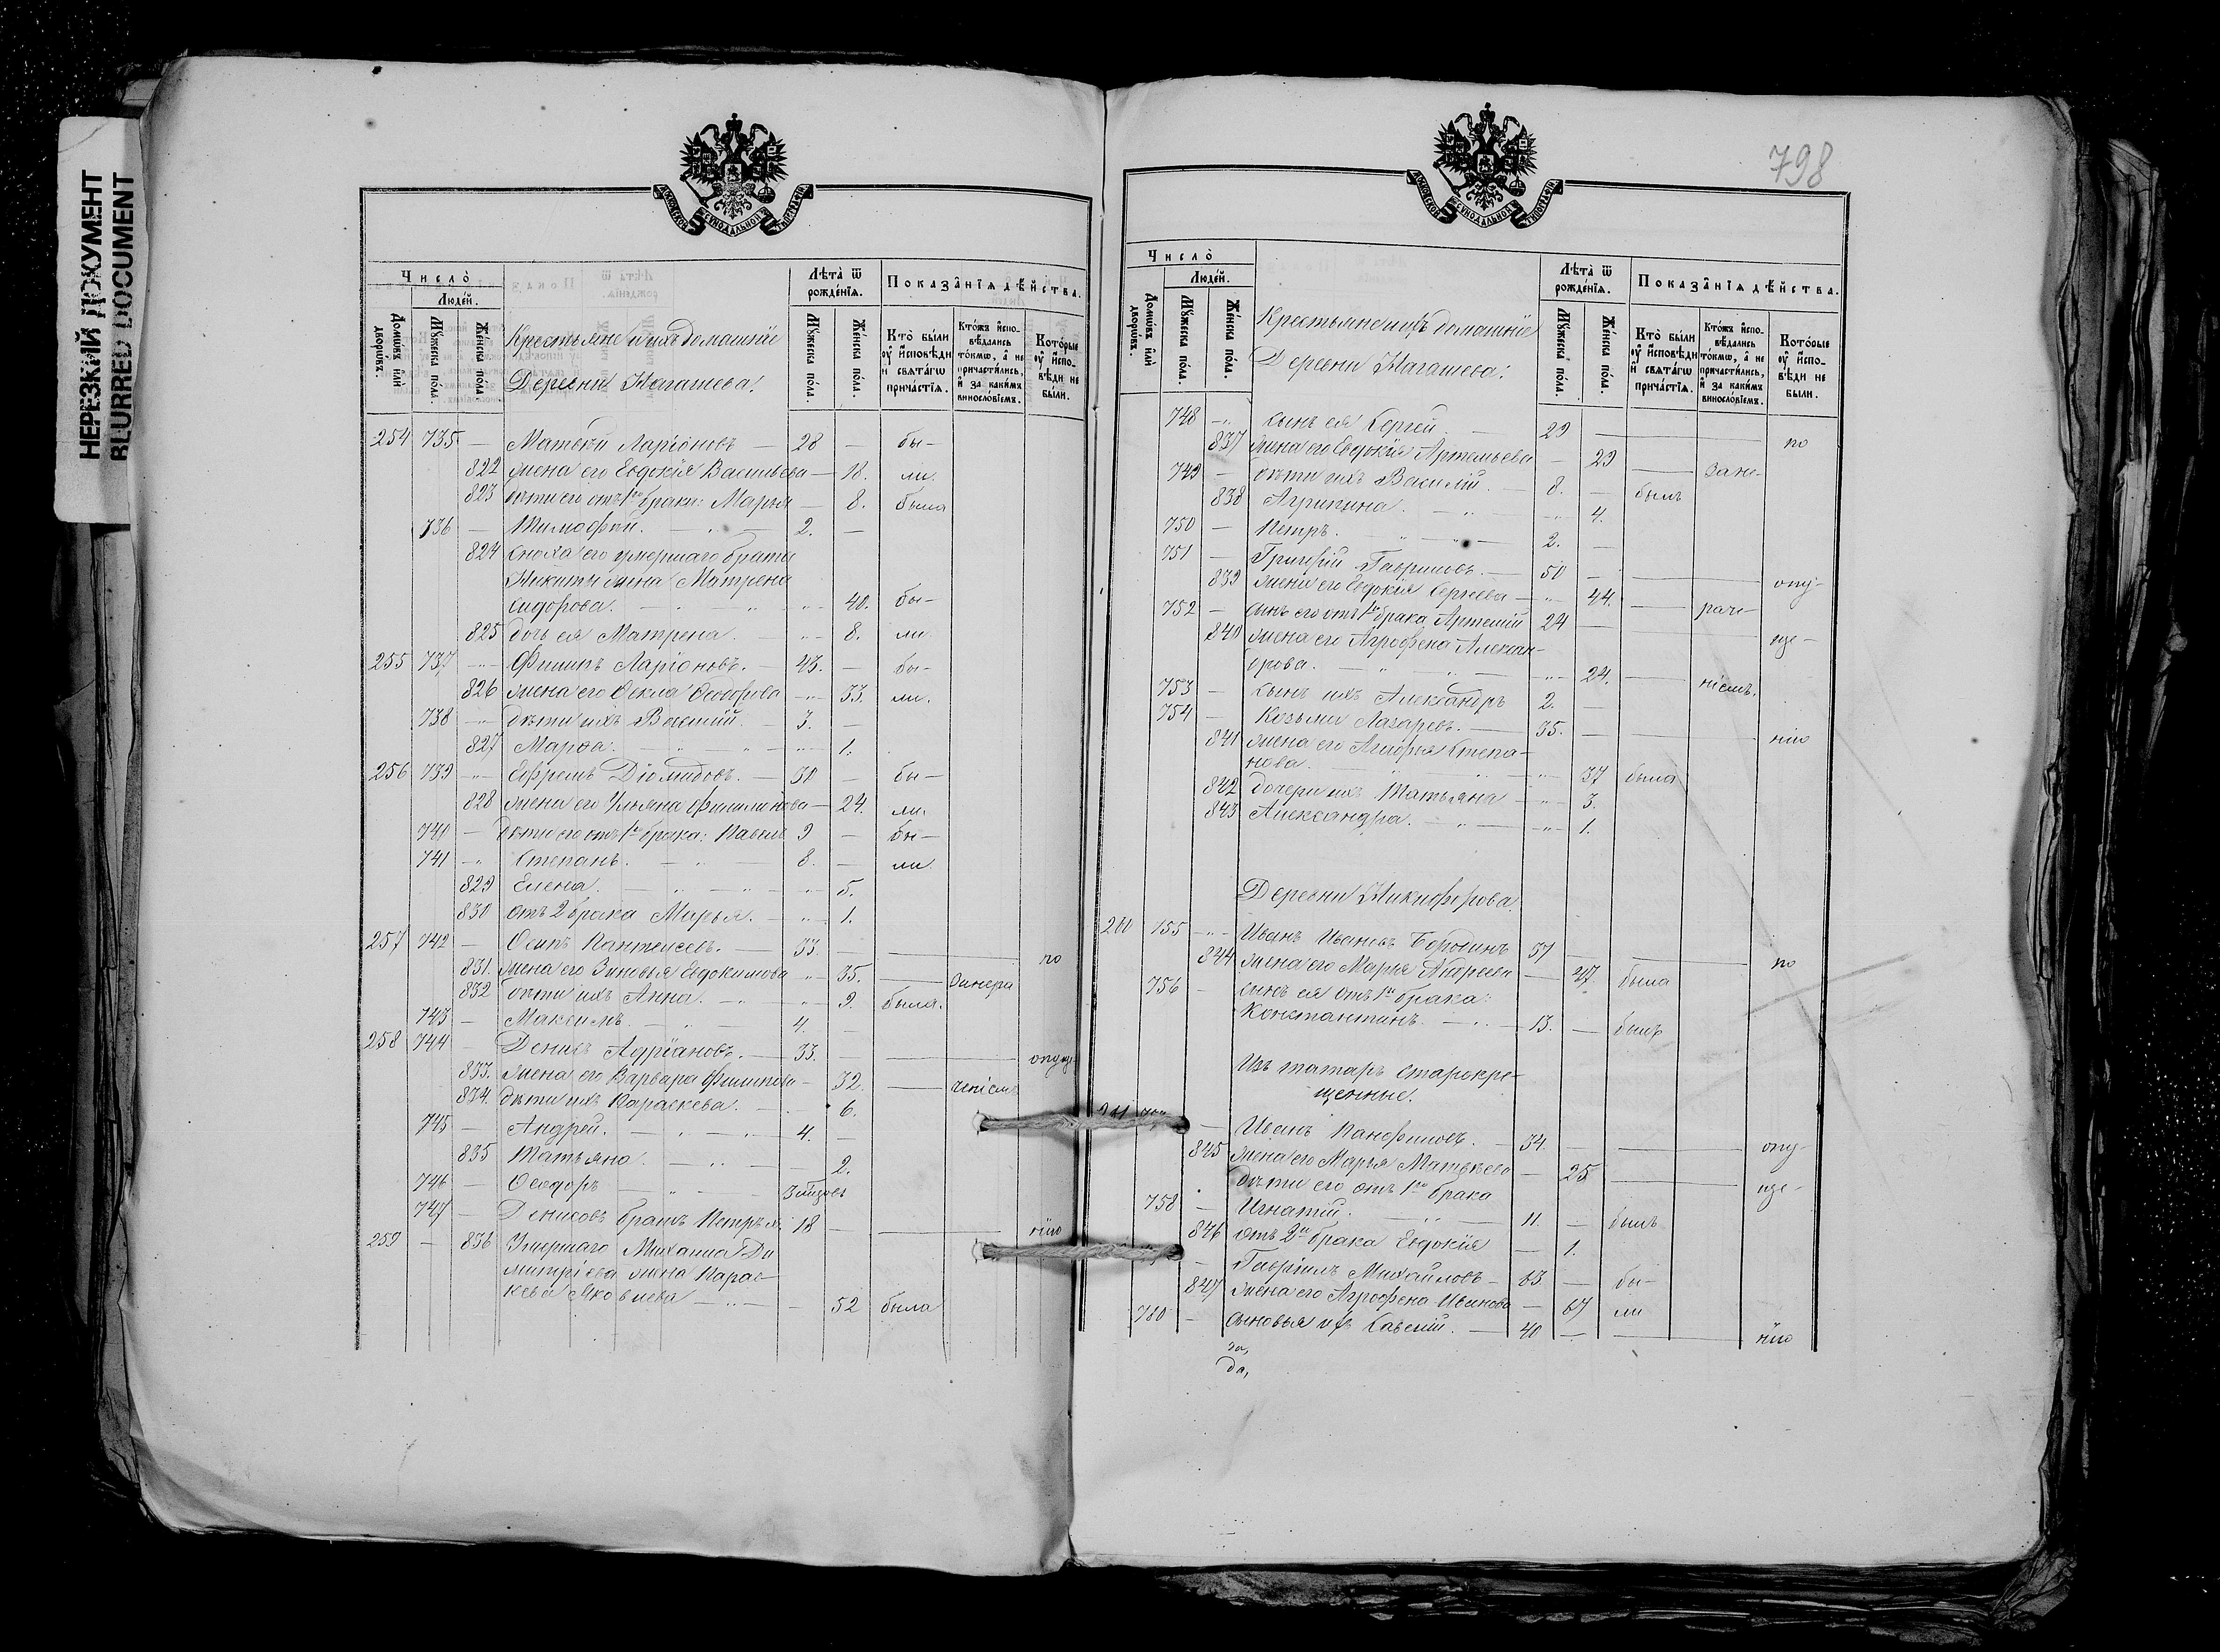 НЕРЕЗКИЙ ДОКУМЕНТ
BLURRED DOCUMENT
МОСКОВСКОЙ СѴНОДАЛЬНОЙ ТИПОГРАФІИ
Число̀
Люде́й.
Домѡ́въ и҆лѝ дворѡ́въ.
Мꙋ́жеска по́ла.
Же́нска по́ла.
Крестьяне и ихъ домашніе
Деревни Нагашева:
Лѣта̀ ѿ рожде́нїѧ.
Мꙋ́жеска по́ла.
Же́нска по́ла.
Показа̑нїѧ дѣ́йства.
Кто̀ бы́ли оу҆ и҆сповѣ́ди и҆ свѧта́гѡ прича́стїѧ.
Кто́жъ и҆спо-вѣ́дались то́кмѡ, а҆ не причасти́лись, и҆ за каки́мъ винослóвїемъ.
Кото́рые оу҆ и҆спо-вѣ́ди не бы́ли.
254 735 — Матвѣй Ларіоновъ — 28 — бы-
822 жена его Евдокія Васильева — 18. ли.
823 дѣти его отъ 1го брака: Марья — 8. была
736 — Тимофей. — 2. —
824 сноха его умершаго брата
Никиты жена Матрена
Сидорова. — 40. бы-
825 дочь ея Матрена. — 8. ли
255 737 — Филипъ Ларіоновъ. — 43. — бы-
826 жена его Ѳекла Ѳеодорова — 33. ли.
738 — дѣти ихъ Василій. — 3. —
827 Марѳа. — 1.
256 739 — Ефремъ Діомидовъ. — 30 — бы-
828 жена его Ульяна Филипова — 24. ли.
740 — дѣти его отъ 1го брака: Павелъ 9 — бы-
741 — Степанъ. — 8. — ли.
829 Елена. — 5.
830 отъ 2 брака Марья. — 1.
257 742 — Осипъ Пантелеевъ. — 33. — по
831. жена его Зиновья Евдокимова 35. — Занера
832 дѣти ихъ Анна. — 9. была.
743 — Максимъ. — 4. —
258 744 — Денисъ Адріановъ. — 33. — опуще-
833. жена его Варвара Филипова — 32. —
834. дѣти ихъ Параскева. — 6.
745 — Андрей. — 4. —
835 Татьяна. — 2.
746 — Ѳеодоръ —
747 — Денисовъ братъ Петръ 18 — нію
259 — 836 Умершаго Михаила Ди
митріева жена Парас-
кева Яковлева — 52 была
798
МОСКОВСКОЙ СѴНОДАЛЬНОЙ ТИПОГРАФІИ
Число̀
Люде́й.
Домѡ́въ и҆лѝ дворѡ́въ.
Мꙋ́жеска по́ла.
Же́нска по́ла.
Крестьяне и ихъ домашніе
Деревни Нагашева:
Лѣта̀ ѿ рожде́нїѧ.
Мꙋ́жеска по́ла.
Же́нска по́ла.
Показа̑нїѧ дѣ́йства.
Кто̀ бы́ли оу҆ и҆сповѣ́ди и҆ свѧта́гѡ прича́стїѧ.
Кто́жъ и҆спо-вѣ́дались то́кмѡ, а҆ не причасти́лись, и҆ за каки́мъ винослóвїемъ.
Кото́рые оу҆ и҆спо-вѣ́ди не бы́ли.
748 — сынъ ея Сергей. — 29 — по
837 жена его Евдокія Артемьева — 29 — Зане-
749 — дѣти ихъ Василій. — 8. — былъ
838 Агрипина. — 4.
750 — Петръ. — 2. —
751 — Григорій Гавриловъ. — 50 — опу-
839 жена его Евдокія Сергѣева — 44. — раче-
752 — сынъ его отъ 1го брака Артемій 24 — ще-
840 жена его Агрофена Алексан-
дрова. — 24. — ніемъ.
753 — сынъ ихъ Александръ 2. —
754 — Козьма Лазаревъ. — 35. — нію
841 жена его Агафья Степа-
нова. — 37 была
842 дочери ихъ Татьяна — 3.
843 Александра. — 1.
Деревни Никифорова.
260 755 — Иванъ Ивановъ Бородинъ 57 — по
844 жена его Марья Андреева — 47. была
756 — сынъ ея отъ 1го брака:
Константинъ. — 13. — былъ
Изъ татаръ старокре-
щенные.
— Иванъ Панфиловъ. — 34. — опу-
845 жена его Марья Матвѣева — 25 — ще-
Дѣти его отъ 1го брака
758 — Игнатій. — 11. — былъ
846 отъ 2го брака Евдокія — 1.
— Гавріилъ Михайловъ — 63 — бы-
847 жена его Агрофена Иванова — 67 ли
760 — сыновья ихъ Савелій. — 40 — нію